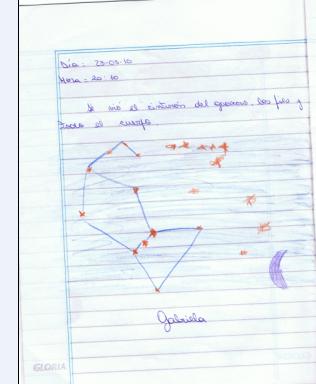 Día: 23-03-10
Hora: 20:10
Se vió el cinturón del guerrero, los pies y
todo el cuerpo.
Gabriela
GLORIA